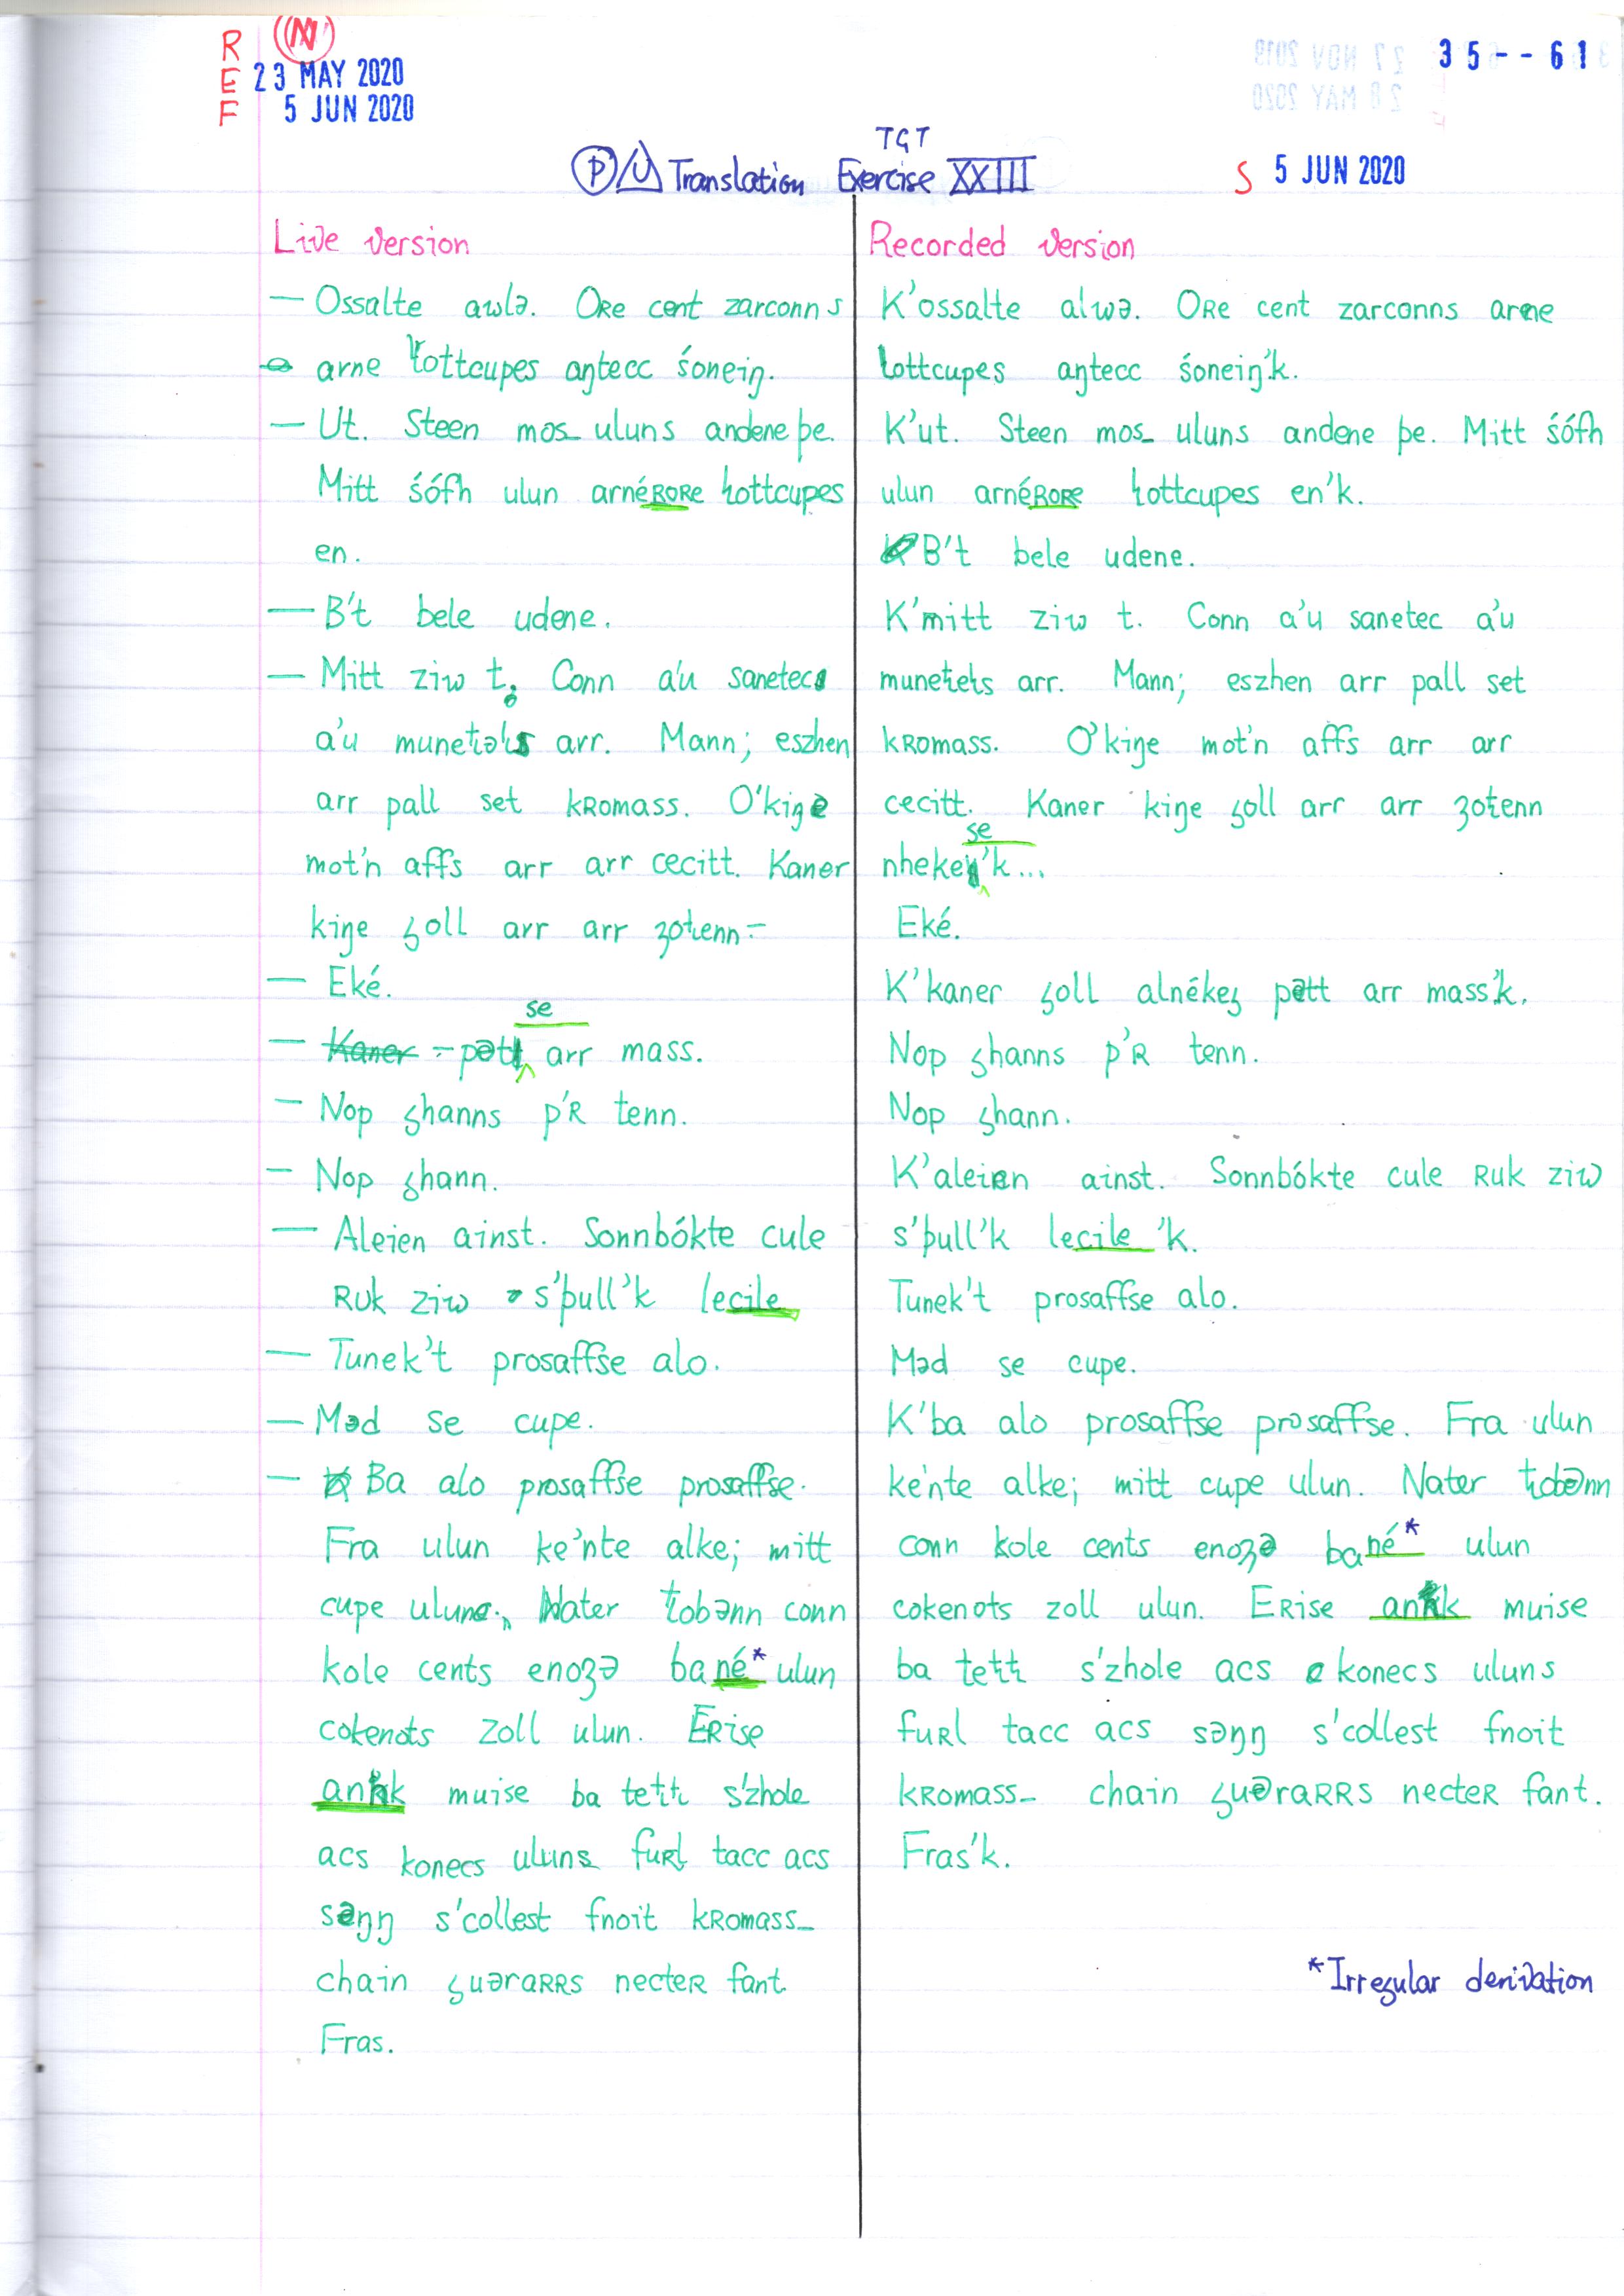 REF
23 MAY 2020
5 JUN 2020
35--61
TGT
P U Translation Exercise XXIII
S 5 JUN 2020
Live version
— Ossalte awlə. Oʀe cent zarconns
arne ꞎottcupes aŋtecc śoneiŋ.
— Ut. Steen mos_ uluns andene þe.
Mitt śófh ulun arnéʀoʀe ꞎottcupes
en.
— B't bele udene.
— Mitt ziw t. Conn a'u sanetec
a'u arr. Mann; eszhen
arr pall set kʀomass. O'kiŋe
mot'n affs arr arr cecitt. Kaner
kiŋe ɢoll arr arr
— Eké.
se
— pət arr mass.
— Nop ɢhanns p'ʀ tenn.
— Nop ɢhann.
— Aleien ainst. Sonnbókte cule
ʀuk ziw s'þull'k lecile
— Tunek't prosaffse alo.
— Məd se cupe.
— Ba alo prosaffse prosaffse.
Fra ulun ke'nte alke; mitt
cupe Nater conn
kole cents enoʒə bané* ulun
cokenots zoll ulun. Eʀise
muise ba s'zhole
acs konecs uluns fuʀl tacc acs
səŋŋ s'collest fnoit kʀomass_
chain ɢuəraʀʀs necteʀ fant.
Fras.
Recorded version
K'ossalte alwə. Oʀe cent zarconns arne
ꞎottcupes aŋtecc śoneiŋ'k.
K'ut. Steen mos_ uluns andene þe. Mitt śófh
ulun arnéʀoʀe ꞎottcupes en'k.
B't bele udene.
K'mitt ziw t. Conn a'u sanetec a'u
arr. Mann; eszhen arr pall set
kʀomass. O'kiŋe mot'n affs arr arr
cecitt. Kaner kiŋe ɢoll arr arr
se
Eké.
K'kaner ɢoll alnékeɢ pətt arr mass'k.
Nop ɢhanns p'ʀ tenn.
Nop ɢhann.
K'aleien ainst. Sonnbókte cule ʀuk ziw
s'þull'k lecile 'k.
Tunek't prosaffse alo.
Məd se cupe.
K'ba alo prosaffse prosaffse. Fra ulun
ke'nte alke; mitt cupe ulun. Nater
conn kole cents enoʒə bané* ulun
cokenots zoll ulun. Eʀise muise
ba s'zhole acs konecs uluns
fuʀl tacc acs səŋŋ s'collest fnoit
kʀomass_ chain ɢuəraʀʀs necteʀ fant.
Fras'k.
*Irregular derivation